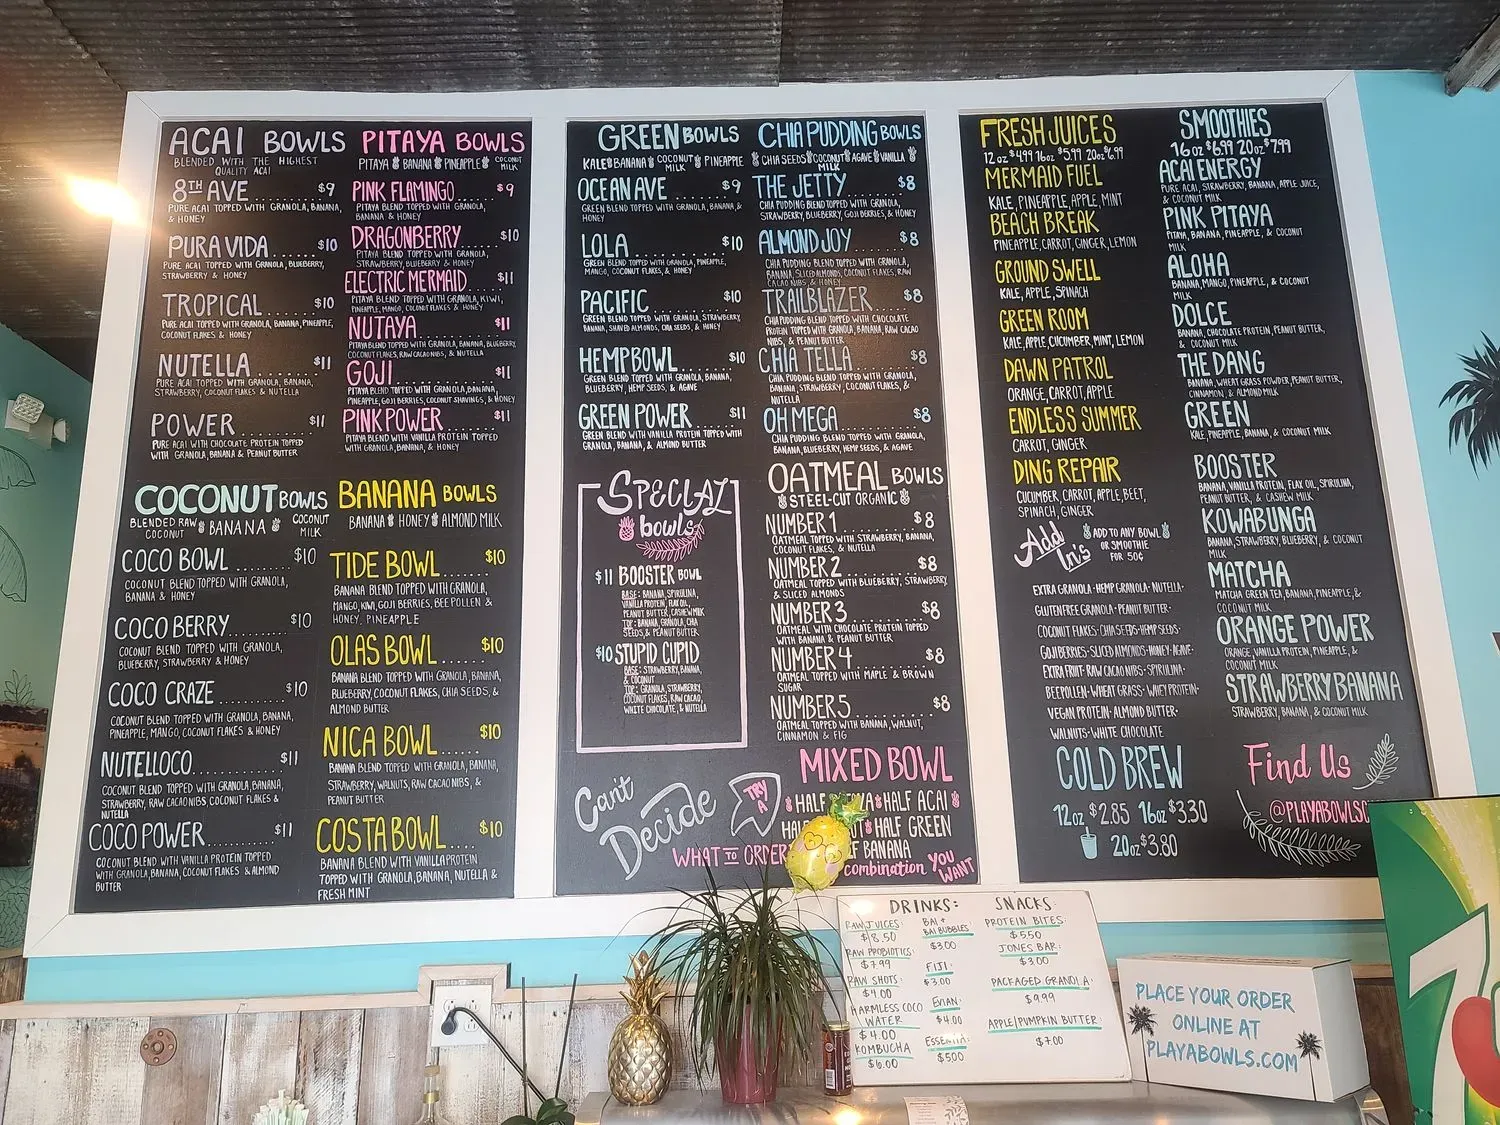 ACAI BOWLS
BLENDED WITH THE HIGHEST
QUALITY ACAI
8TH AVE $9
PURE ACAI TOPPED WITH GRANOLA, BANANA,
& HONEY
PURA VIDA $10
PURE ACAI TOPPED WITH GRANOLA, BLUEBERRY,
STRAWBERRY & HONEY
TROPICAL $10
PURE ACAI TOPPED WITH GRANOLA, BANANA, PINEAPPLE,
COCONUT FLAKES & HONEY
NUTELLA $11
PURE ACAI TOPPED WITH GRANOLA, BANANA,
STRAWBERRY, COCONUT FLAKES & NUTELLA
POWER $11
PURE ACAI WITH CHOCOLATE PROTEIN TOPPED
WITH GRANOLA, BANANA & PEANUT BUTTER
PITAYA BOWLS
PITAYA BANANA PINEAPPLE COCONUT MILK
PINK FLAMINGO $9
PITAYA BLEND TOPPED WITH GRANOLA,
BANANA & HONEY
DRAGONBERRY $10
PITAYA BLEND TOPPED WITH GRANOLA,
STRAWBERRY, BLUEBERRY & HONEY
ELECTRIC MERMAID $11
PITAYA BLEND TOPPED WITH GRANOLA, KIWI,
PINEAPPLE, MANGO, COCONUT FLAKES & HONEY
NUTAYA $11
PITAYA BLEND TOPPED WITH GRANOLA, BANANA, BLUEBERRY,
COCONUT FLAKES, RAW CACAO NIBS, & NUTELLA
GOJI $11
PITAYA BLEND TOPPED WITH GRANOLA, BANANA,
PINEAPPLE, GOJI BERRIES, COCONUT SHAVINGS, & HONEY
PINK POWER $11
PITAYA BLEND WITH VANILLA PROTEIN TOPPED
WITH GRANOLA, BANANA, & HONEY
COCONUT BOWLS
BLENDED RAW COCONUT BANANA COCONUT MILK
COCO BOWL $10
COCONUT BLEND TOPPED WITH GRANOLA,
BANANA & HONEY
COCO BERRY $10
COCONUT BLEND TOPPED WITH GRANOLA,
BLUEBERRY, STRAWBERRY & HONEY
COCO CRAZE $10
COCONUT BLEND TOPPED WITH GRANOLA, BANANA,
PINEAPPLE, MANGO, COCONUT FLAKES & HONEY
NUTELLOCO $11
COCONUT BLEND TOPPED WITH GRANOLA, BANANA,
STRAWBERRY, RAW CACAO NIBS, COCONUT FLAKES &
NUTELLA
COCO POWER $11
COCONUT BLEND WITH VANILLA PROTEIN TOPPED
WITH GRANOLA, BANANA, COCONUT FLAKES & ALMOND
BUTTER
BANANA BOWLS
BANANA HONEY ALMOND MILK
TIDE BOWL $10
BANANA BLEND TOPPED WITH GRANOLA,
MANGO, KIWI, GOJI BERRIES, BEE POLLEN &
HONEY, PINEAPPLE
OLAS BOWL $10
BANANA BLEND TOPPED WITH GRANOLA, BANANA,
BLUEBERRY, COCONUT FLAKES, CHIA SEEDS, &
ALMOND BUTTER
NICA BOWL $10
BANANA BLEND TOPPED WITH GRANOLA, BANANA,
STRAWBERRY, WALNUTS, RAW CACAO NIBS, &
PEANUT BUTTER
COSTA BOWL $10
BANANA BLEND WITH VANILLA PROTEIN
TOPPED WITH GRANOLA, BANANA, NUTELLA &
FRESH MINT
GREEN BOWLS
KALE BANANA COCONUT MILK PINEAPPLE
OCEAN AVE $9
GREEN BLEND TOPPED WITH GRANOLA, BANANA, &
HONEY
LOLA $10
GREEN BLEND TOPPED WITH GRANOLA, PINEAPPLE,
MANGO, COCONUT FLAKES, & HONEY
PACIFIC $10
GREEN BLEND TOPPED WITH GRANOLA, STRAWBERRY,
BANANA, SHAVED ALMONDS, CHIA SEEDS, & HONEY
HEMP BOWL $10
GREEN BLEND TOPPED WITH GRANOLA, BANANA,
BLUEBERRY, HEMP SEEDS, & AGAVE
GREEN POWER $11
GREEN BLEND WITH VANILLA PROTEIN TOPPED WITH
GRANOLA, BANANA, & ALMOND BUTTER
SPECIAL
bowls
$11 BOOSTER BOWL
BASE: BANANA, SPIRULINA,
VANILLA PROTEIN, FLAX OIL,
PEANUT BUTTER, CASHEW MILK
TOP: BANANA, GRANOLA, CHIA
SEEDS, & PEANUT BUTTER
$10 STUPID CUPID
BASE: STRAWBERRY, BANANA,
& COCONUT
TOP: GRANOLA, STRAWBERRY,
COCONUT FLAKES, RAW CACAO,
WHITE CHOCOLATE, & NUTELLA
CHIA PUDDING BOWLS
CHIA SEEDS COCONUT MILK AGAVE VANILLA
THE JETTY $8
CHIA PUDDING BLEND TOPPED WITH GRANOLA,
STRAWBERRY, BLUEBERRY, GOJI BERRIES, & HONEY
ALMOND JOY $8
CHIA PUDDING BLEND TOPPED WITH GRANOLA,
BANANA, SLICED ALMONDS, COCONUT FLAKES, RAW
CACAO NIBS, & HONEY
TRAILBLAZER $8
CHIA PUDDING BLEND TOPPED WITH CHOCOLATE
PROTEIN TOPPED WITH GRANOLA, BANANA, RAW CACAO
NIBS, & PEANUT BUTTER
CHIA TELLA $8
CHIA PUDDING BLEND TOPPED WITH GRANOLA,
BANANA, STRAWBERRY, COCONUT FLAKES, &
NUTELLA
OH MEGA $8
CHIA PUDDING BLEND TOPPED WITH GRANOLA,
BANANA, BLUEBERRY, HEMP SEEDS, & AGAVE
OATMEAL BOWLS
STEEL-CUT ORGANIC
NUMBER 1 $8
OATMEAL TOPPED WITH STRAWBERRY, BANANA,
COCONUT FLAKES, & NUTELLA
NUMBER 2 $8
OATMEAL TOPPED WITH BLUEBERRY, STRAWBERRY,
& SLICED ALMONDS
NUMBER 3 $8
OATMEAL WITH CHOCOLATE PROTEIN TOPPED
WITH BANANA & PEANUT BUTTER
NUMBER 4 $8
OATMEAL TOPPED WITH MAPLE & BROWN
SUGAR
NUMBER 5 $8
OATMEAL TOPPED WITH BANANA, WALNUT,
CINNAMON & FIG
Can't
Decide
WHAT TO ORDER
TRY A
MIXED BOWL
HALF HALF ACAI
HALF GREEN
BANANA
combination YOU
WANT
FRESH JUICES
12 oz $4.99 16oz $5.99 20oz $6.99
MERMAID FUEL
KALE, PINEAPPLE, APPLE, MINT
BEACH BREAK
PINEAPPLE, CARROT, GINGER, LEMON
GROUND SWELL
KALE, APPLE, SPINACH
GREEN ROOM
KALE, APPLE, CUCUMBER, MINT, LEMON
DAWN PATROL
ORANGE, CARROT, APPLE
ENDLESS SUMMER
CARROT, GINGER
DING REPAIR
CUCUMBER, CARROT, APPLE, BEET,
SPINACH, GINGER
Add In's
ADD TO ANY BOWL
OR SMOOTHIE
FOR 50¢
EXTRA GRANOLA · HEMP GRANOLA · NUTELLA ·
GLUTEN FREE GRANOLA · PEANUT BUTTER ·
COCONUT FLAKES · CHIA SEEDS · HEMP SEEDS ·
GOJI BERRIES · SLICED ALMONDS · HONEY · AGAVE ·
EXTRA FRUIT · RAW CACAO NIBS · SPIRULINA ·
BEE POLLEN · WHEAT GRASS · WHEY PROTEIN ·
VEGAN PROTEIN · ALMOND BUTTER ·
WALNUTS · WHITE CHOCOLATE
COLD BREW
12oz $2.85 16oz $3.30
20oz $3.80
SMOOTHIES
16 oz $6.99 20oz $7.99
ACAI ENERGY
PURE ACAI, STRAWBERRY, BANANA, APPLE JUICE,
& COCONUT MILK
PINK PITAYA
PITAYA, BANANA, PINEAPPLE, & COCONUT
MILK
ALOHA
BANANA, MANGO, PINEAPPLE, & COCONUT
MILK
DOLCE
BANANA, CHOCOLATE PROTEIN, PEANUT BUTTER,
& COCONUT MILK
THE DANG
BANANA, WHEAT GRASS POWDER, PEANUT BUTTER,
CINNAMON, & ALMOND MILK
GREEN
KALE, PINEAPPLE, BANANA, & COCONUT MILK
BOOSTER
BANANA, VANILLA PROTEIN, FLAX OIL, SPIRULINA,
PEANUT BUTTER, & CASHEW MILK
KOWABUNGA
BANANA, STRAWBERRY, BLUEBERRY, & COCONUT
MILK
MATCHA
MATCHA GREEN TEA, BANANA, PINEAPPLE, &
COCONUT MILK
ORANGE POWER
ORANGE, VANILLA PROTEIN, PINEAPPLE, &
COCONUT MILK
STRAWBERRY BANANA
STRAWBERRY, BANANA, & COCONUT MILK
Find Us
DRINKS:
RAW JUICES:
$8.50
RAW PROBIOTICS:
$7.99
RAW SHOTS:
$4.00
HARMLESS COCO
WATER
$4.00
KOMBUCHA
$6.00
BAI +
BAI BUBBLES
$3.00
FIJI:
$3.00
EVIAN:
$4.00
ESSENTIA:
$5.00
SNACKS:
PROTEIN BITES:
$5.50
JONES BAR:
$3.00
PACKAGED GRANOLA:
$9.99
APPLE/PUMPKIN BUTTER:
$7.00
PLACE YOUR ORDER
ONLINE AT
PLAYABOWLS.COM
7